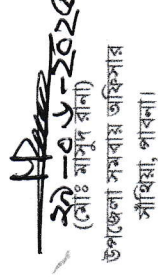 ২৯-০৮-২০২৪
(মোঃ মাসুদ রানা)
উপজেলা সমবায় অফিসার
সাঁথিয়া, পাবনা।